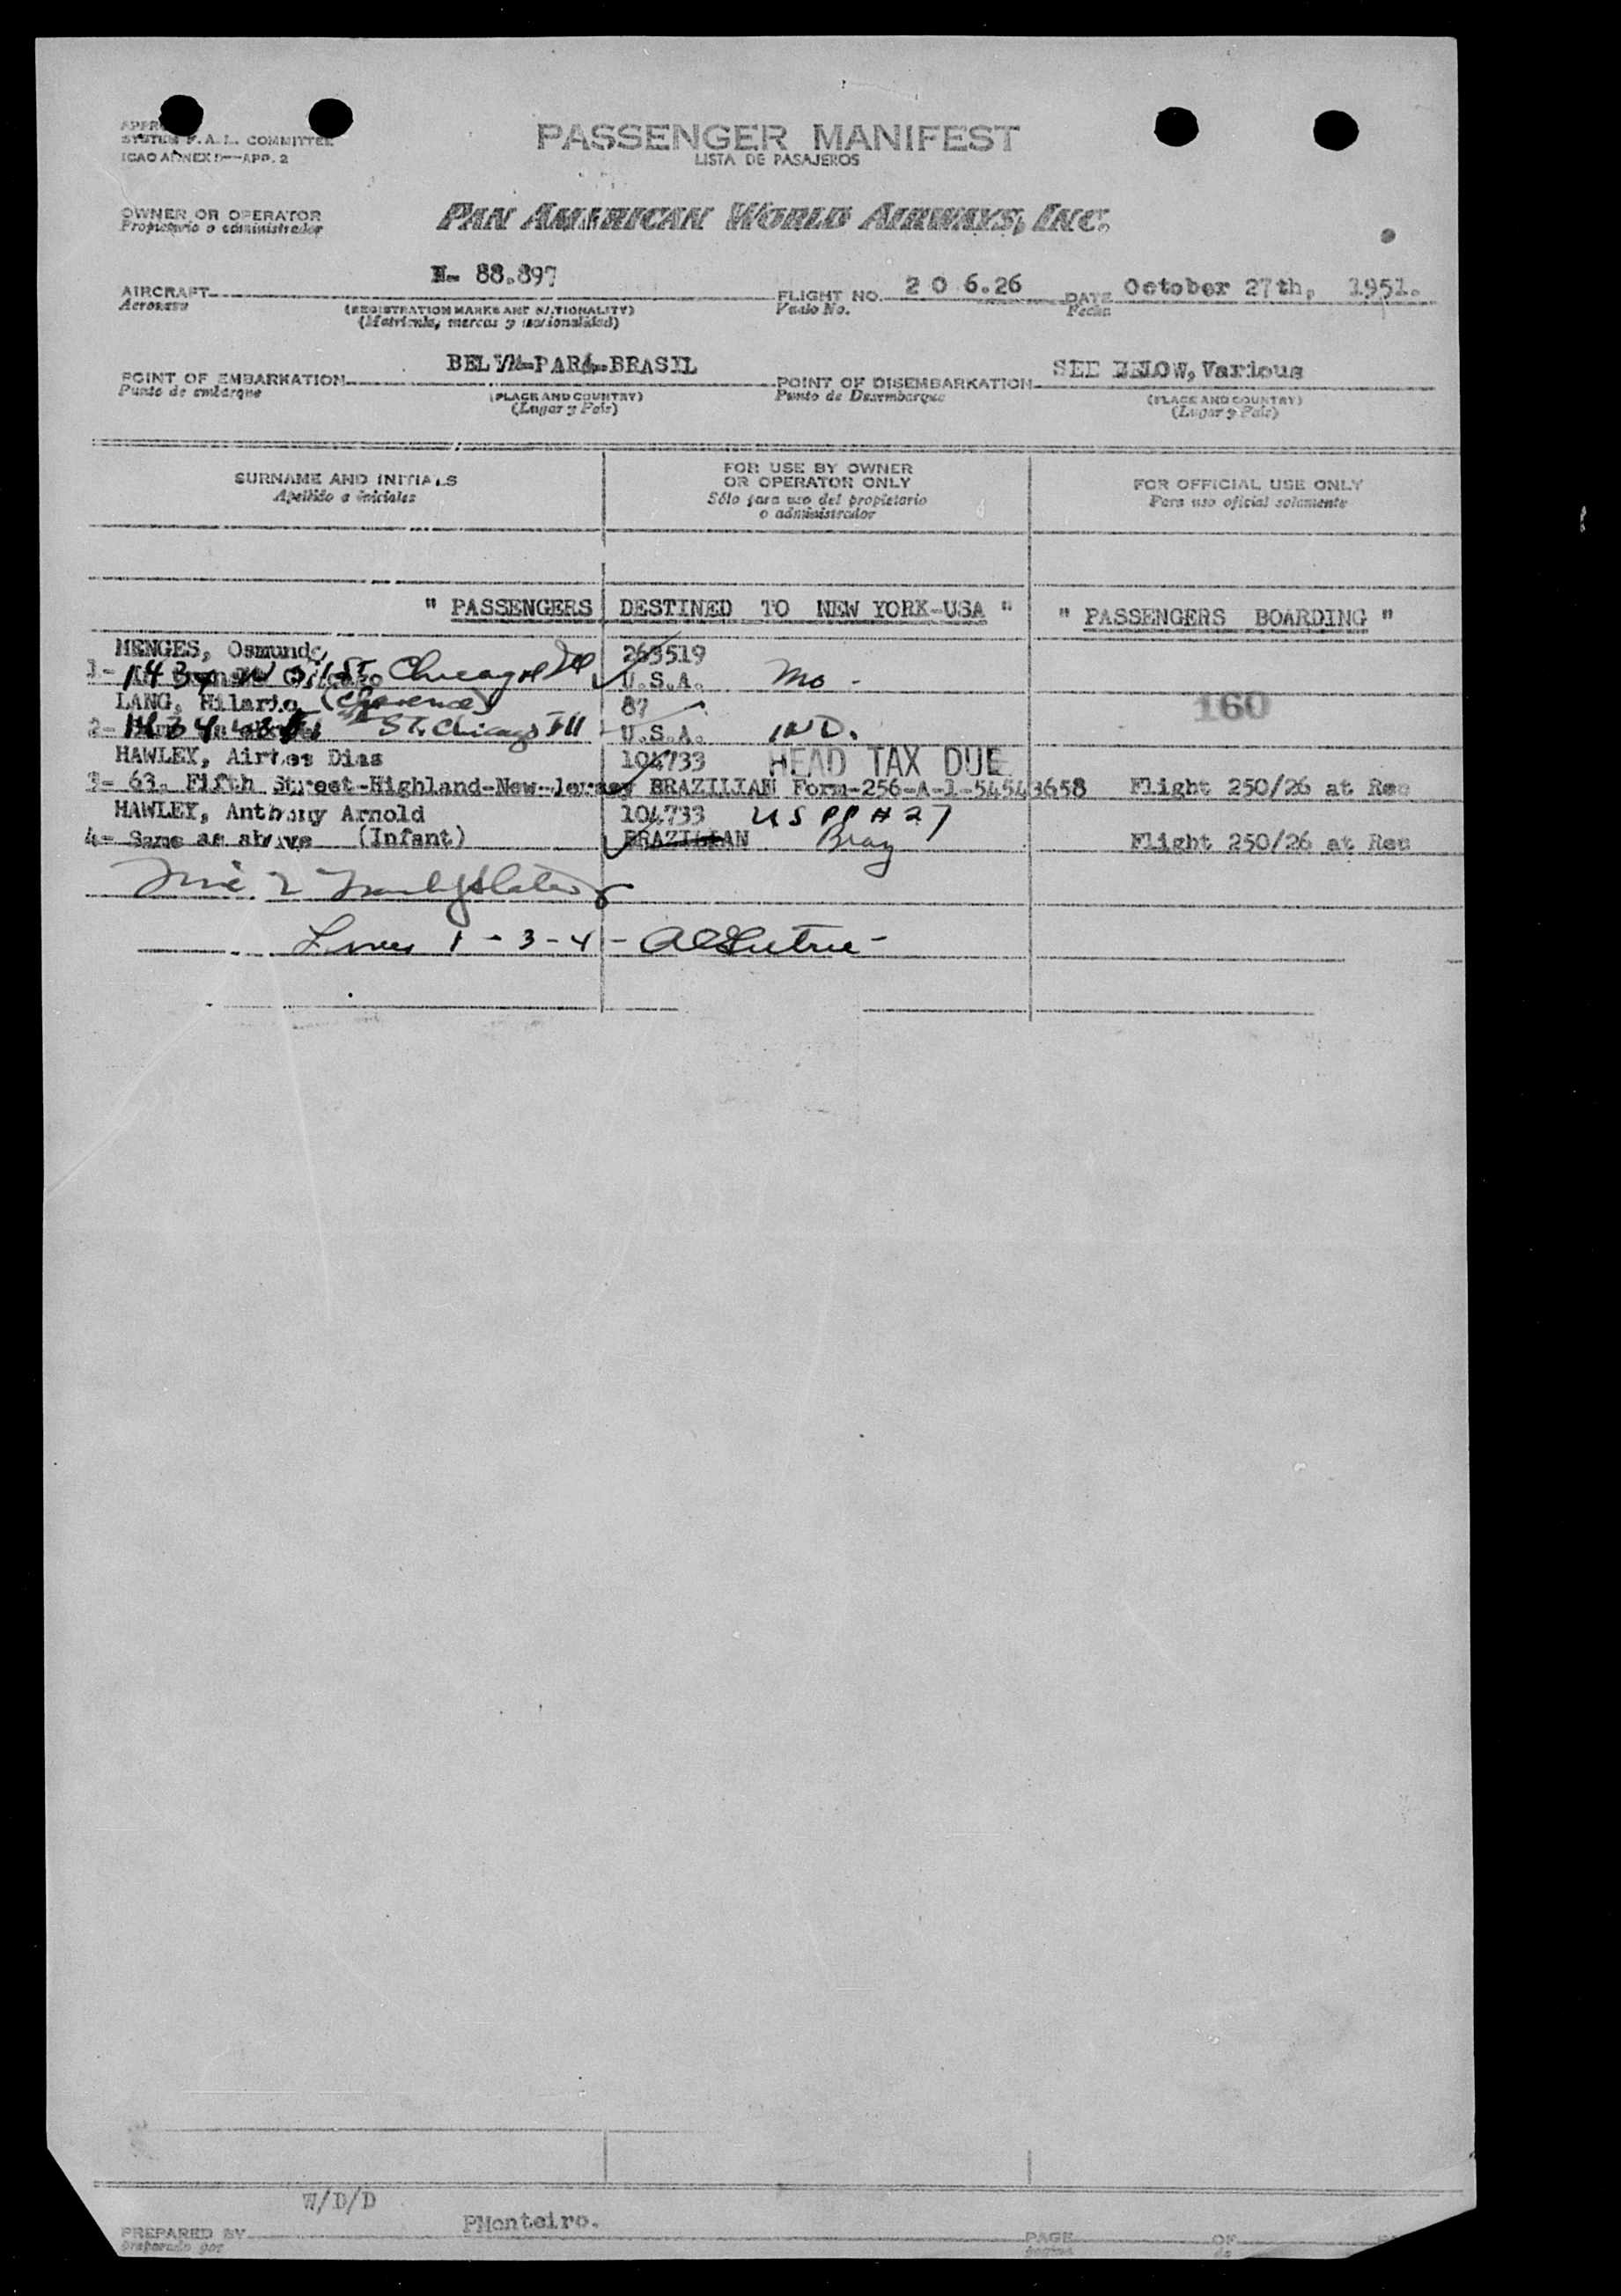 SYSTEM F.A.L. COMMITTEE
ICAO ANNEX 9—APP. 2
PASSENGER MANIFEST
LISTA DE PASAJEROS
OWNER OR OPERATOR
Propietario o administrador
PAN AMERICAN WORLD AIRWAYS, INC.
AIRCRAFT N- 88.897
Aeronave
(REGISTRATION MARKS AND NATIONALITY)
(Matrícula, marcas y nacionalidad)
FLIGHT NO. 2 0 6.26
Vuelo No.
DATE October 27th, 1951.
Fecha
POINT OF EMBARKATION BELEM-PARÁ-BRASIL
Punto de embarque
(PLACE AND COUNTRY)
(Lugar y País)
POINT OF DISEMBARKATION SEE BELOW, Various
Punto de Desembarque
(PLACE AND COUNTRY)
(Lugar y País)
SURNAME AND INITIALS
Apellido e iniciales
FOR USE BY OWNER
OR OPERATOR ONLY
Sólo para uso del propietario
o administrador
FOR OFFICIAL USE ONLY
Para uso oficial solamente
" PASSENGERS DESTINED TO NEW YORK-USA " " PASSENGERS BOARDING "
MENGES, Osmundo 263519
1- 1434 W St Chicago Ill U.S.A. Mo -
LANG, Hilario (Clarence) 87 160
2- 1434 St. Chicago Ill U.S.A. IND.
HAWLEY, Airtes Dias 104733 HEAD TAX DUE
3- 63, Fifth Street-Highland-New-Jersey BRAZILIAN Form-256-A-1-54543658 Flight 250/26 at Rec
HAWLEY, Anthony Arnold 104733 US PP # 27
4- Same as above (Infant) BRAZILIAN Braz Flight 250/26 at Rec
Line 2
Lines 1 - 3 - 4 -
W/D/D
PREPARED BY PMonteiro.
preparado por
PAGE OF
página de